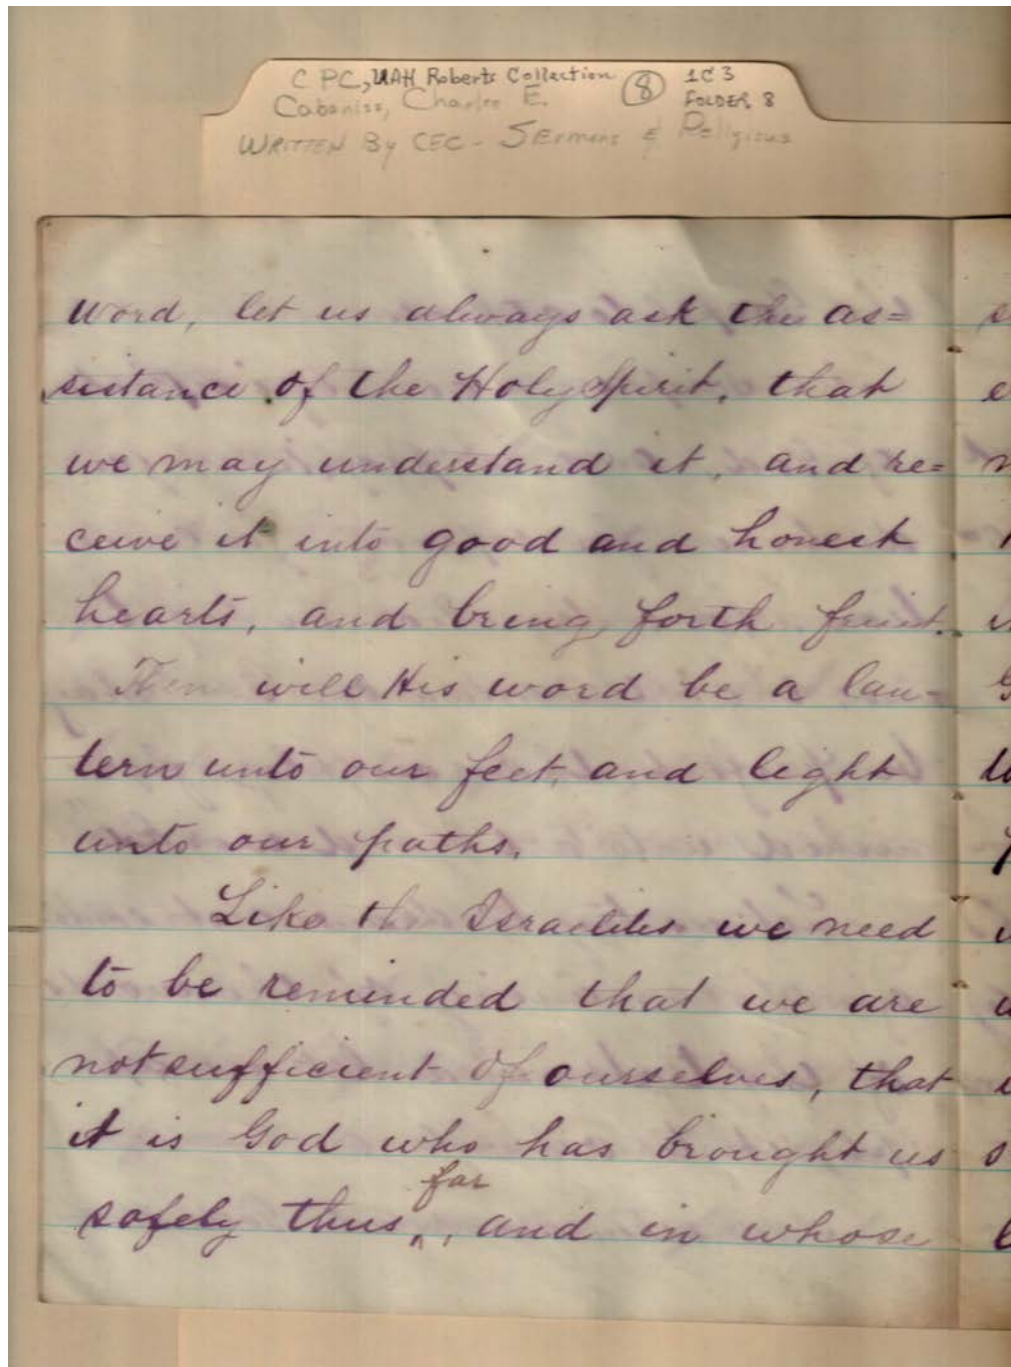 C PC, UAH Roberts Collection (8) 1C3
Cabaniss, Charles E. FOLDER 8
WRITTEN By CEC - SErmons & Religious
word, let us always ask the as=
sistance of the Holy Spirit, that
we may understand it, and re=
ceive it into good and honest
hearts, and bring forth fruit.
Then will His word be a lan-
tern unto our feet, and light
unto our paths.
Like th Israelites we need
to be reminded that we are
not sufficient of ourselves, that
it is God who has brought us
far
safely thus^, and in whose